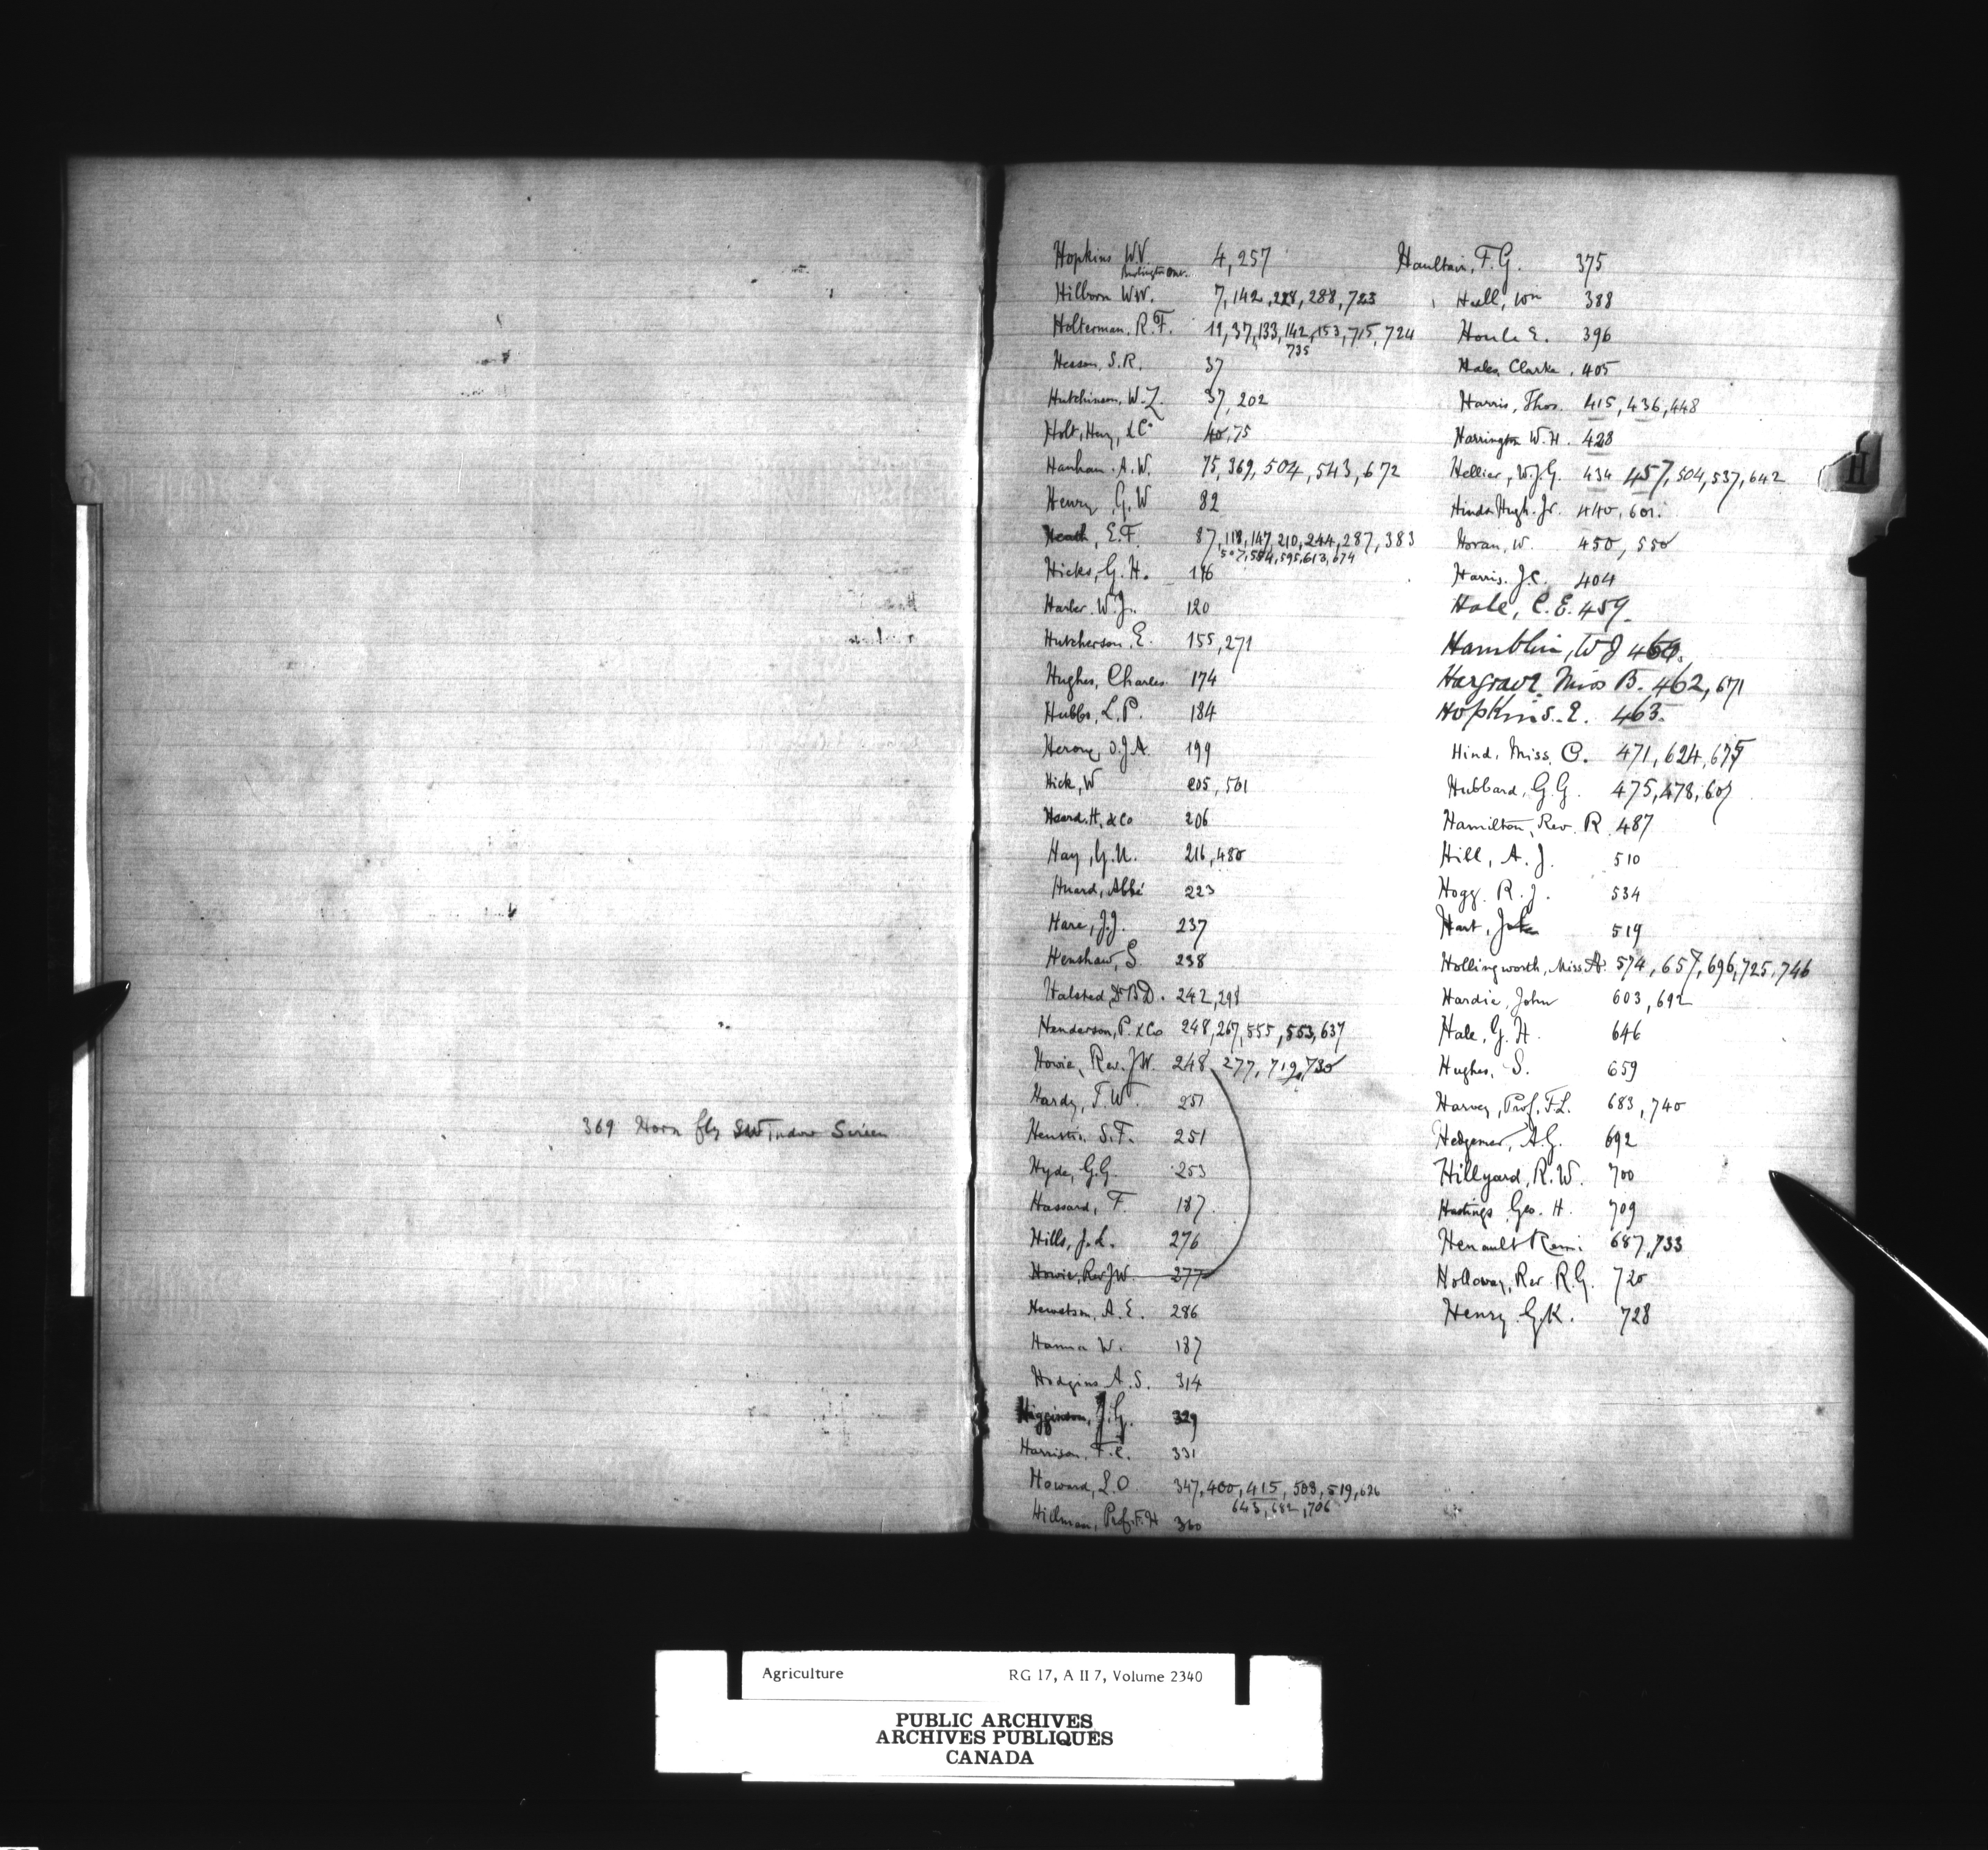 369 Horn fly Window Screen
Hopkins W.V. 4, 257
Burlington Ont.
Hilborn W.W. 7, 142, 228, 288, 723
Holterman, R.F. 19, 37, 133, 142, 153, 715, 724
735
Hesson, S.R. 37
Hutchinson, W.Z. 37, 202
Holt, Heny, & Co 40, 75
Hanham A.W. 75, 369, 504, 543, 672
Henry, G.W 82
Heath, E.F. 87, 118, 147, 210, 244, 287, 383
507, 554, 595, 613, 674
Hicks, G.H. 116
Harber W.J. 120
Hutcherson, E. 155, 271
Hughes, Charles 174
Hubbs, L.P. 184
199
Hick, W 205, 501
Heard. H, & Co 206
Hay, G.U. 216, 480
Huard, Abbé 223
Hare, J.J. 237
Henshaw, S 238
Halsted, Dr B.D. 242, 298
Henderson, P. & Co 248, 267, 555, 553, 637
Howie, Rev. J.W. 248, 277, 719, 730
Hardy, F.W. 251
S.F. 251
Hyde, G.G. 253
Hassard, F. 187
Hills, J.L. 276
Howie, Rev J.W. 277
Hewetson, A.E. 286
Hanna W. 187
Hodgins A.S. 314
Higginson, J.G. 329
Harrison, F.C. 331
Howard, L.O. 347, 400, 415, 503, 519, 626
643, 682, 706
Hillman, Prof. F.H 360
Haultain, F.G. 375
Hall, Wm 388
Houle E. 396
Hales, Clarke. 405
Harris, Thos. 415, 436, 448
Harrington W.H. 428
Hellier, W.J.G. 434 457, 504, 537, 642
Hinds Hugh. Jr. 440, 601.
Horan, W. 450, 550
Harris. J.C. 404
Hale, C.E. 459.
Hamblin, W J 460.
Hargrave Miss B. 462, 671
Hopkins. E. 463.
Hind, Miss. C. 471, 624, 675
Hubbard, G.G. 475, 478, 607
Hamilton, Rev. R. 487
Hill, A.J. 510
Hogg. R.J. 534
Hart, John 519
Hollingworth, Miss A. 574, 657, 696, 725, 746
Hardie, John 603, 692
Hale, G.H. 646
Hughes, S. 659
Harvey, Prof. F.L. 683, 740
A.G. 692
Hillyard, R.W. 700
Hastings Geo. H. 709
Henault Remi 687, 733
Holloway, Rev. R.G. 720
Henry G.K. 728
H
Agriculture RG 17, A II 7, Volume 2340
PUBLIC ARCHIVES
ARCHIVES PUBLIQUES
CANADA